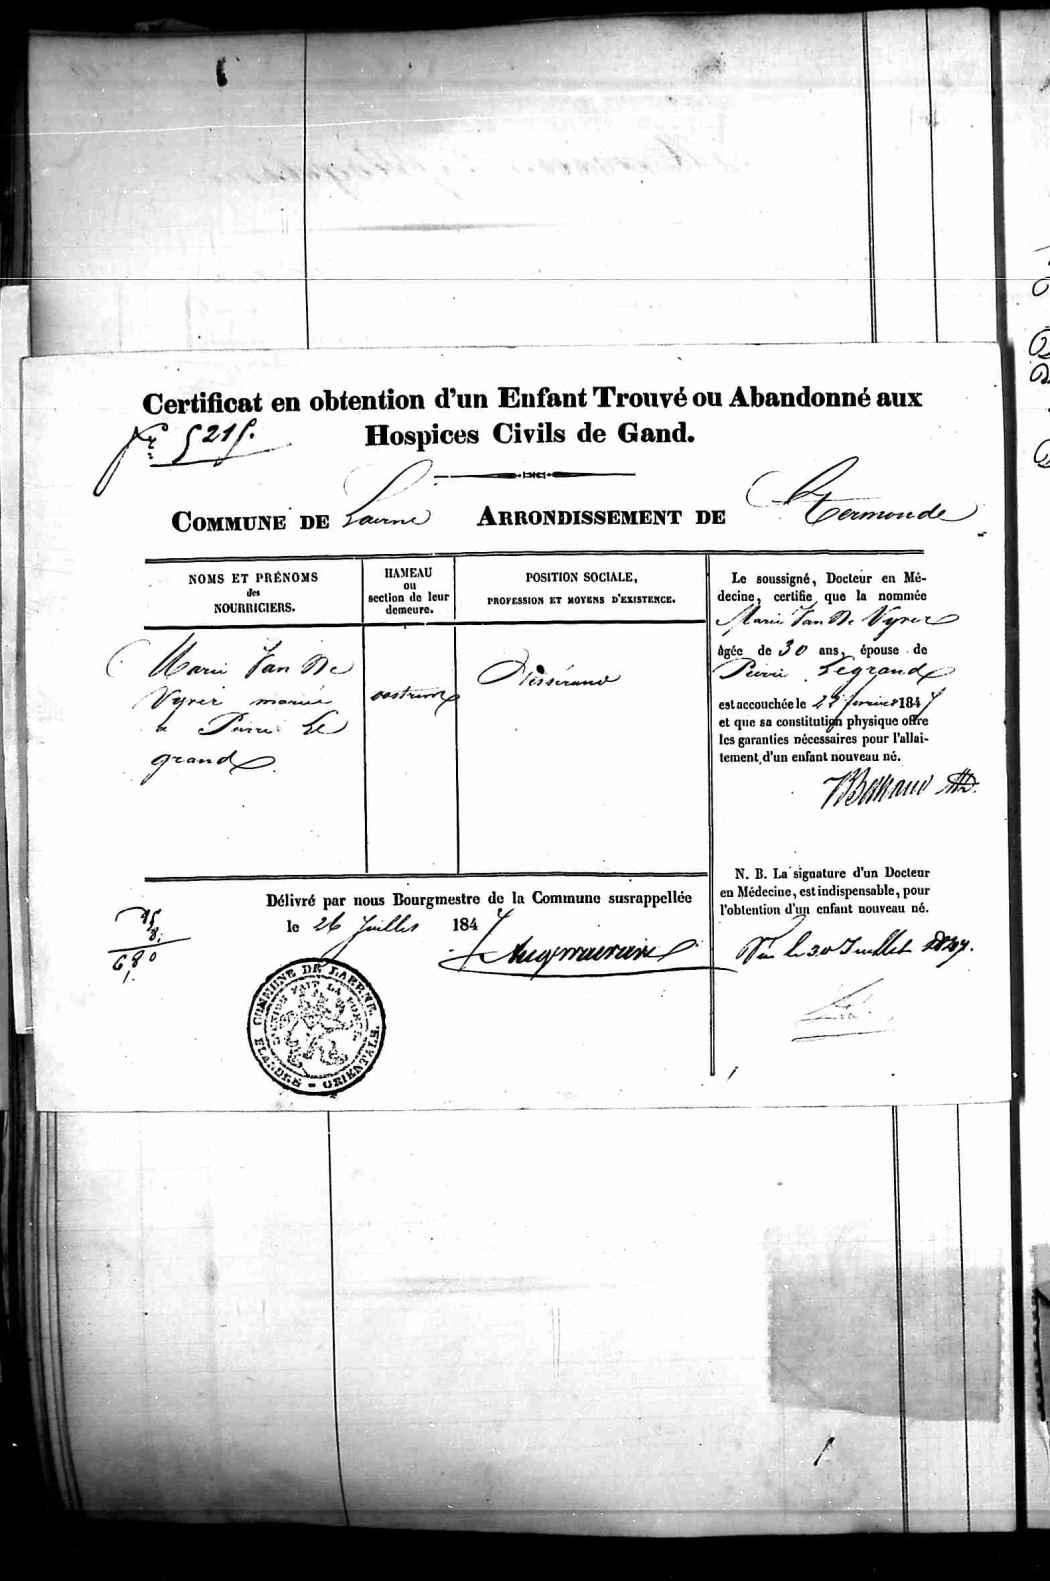 Certificat en obtention d'un Enfant Trouvé ou Abandonné aux
Hospices Civils de Gand.
COMMUNE DE Laerne ARRONDISSEMENT DE Termonde
NOMS ET PRÉNOMS
des
NOURRICIERS.
HAMEAU
ou
section de leur
demeure.
POSITION SOCIALE,
PROFESSION ET MOYENS D'EXISTENCE.
Marie Van De
Vyver mariée
a Pierre Le
grand
Le soussigné, Docteur en Mé-
decine, certifie que la nommée
Marie Van De Vyver
âgée de 30 ans, épouse de
Pierre Legrand
est accouchée le 184
et que sa constitution physique offre
les garanties nécessaires pour l'allai-
tement d'un enfant nouveau né.
N. B. La signature d'un Docteur
en Médecine, est indispensable, pour
l'obtention d'un enfant nouveau né.
Délivré par nous Bourgmestre de la Commune susrappellée
le 26 Juillet 1847
Vu le 30 Juillet 1847.
COMMUNE DE LAERNE
FLANDRE - ORIENTALE.
L'UNION FAIT LA FORCE
680